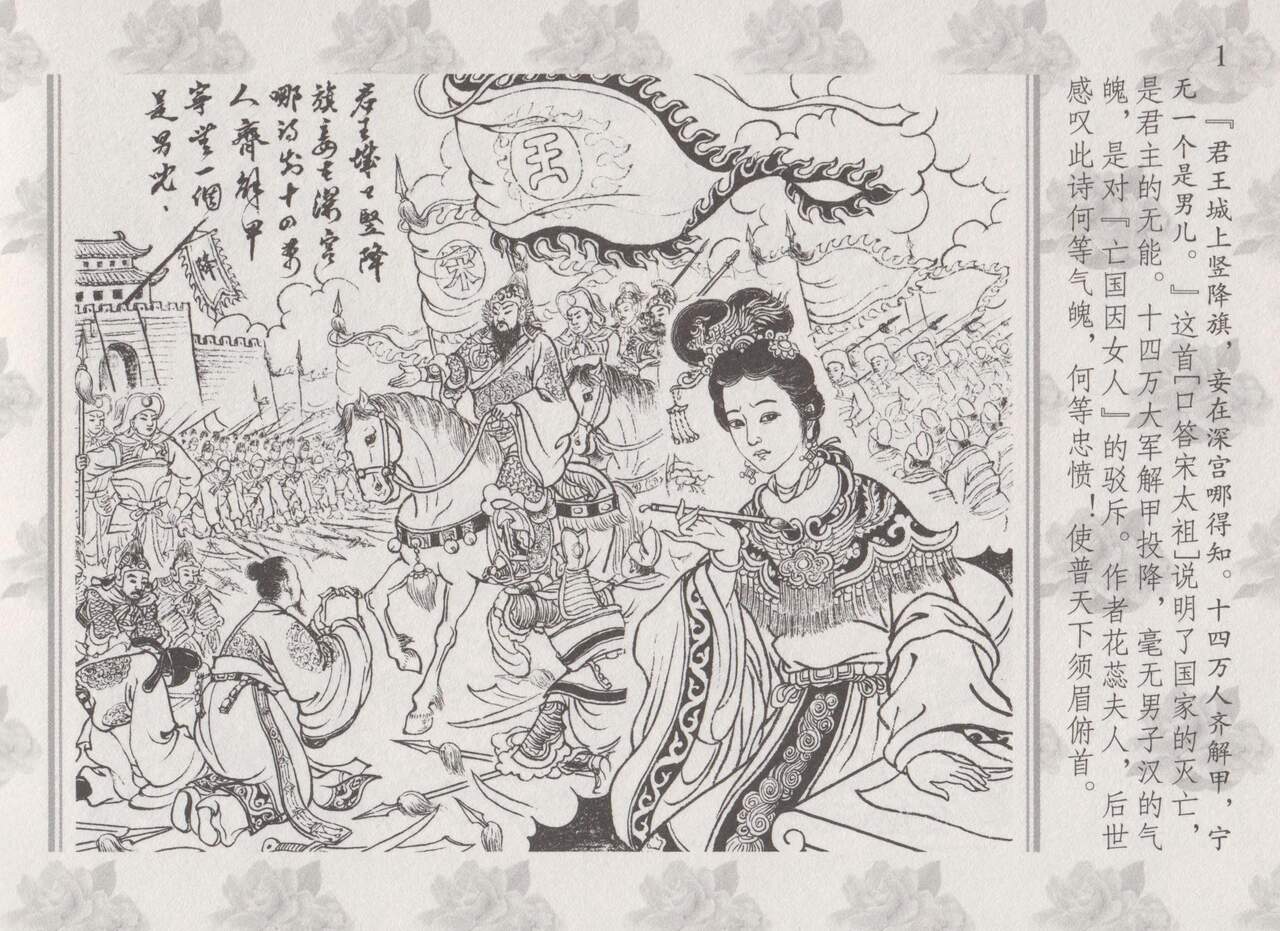 1
『君王城上竖降旗，妾在深宫哪得知。十四万人齐解甲，宁
无一个是男儿。』这首[口答宋太祖]说明了国家的灭亡，
是君主的无能。十四万大军解甲投降，毫无男子汉的气
魄，是对『亡国因女人』的驳斥。作者花蕊夫人，后世
感叹此诗何等气魄，何等忠愤！使普天下须眉俯首。
王
宋
君王城上竪降
旗妾在深宫
哪得知十四萬
人齊解甲
寧無一個
是男兒
降